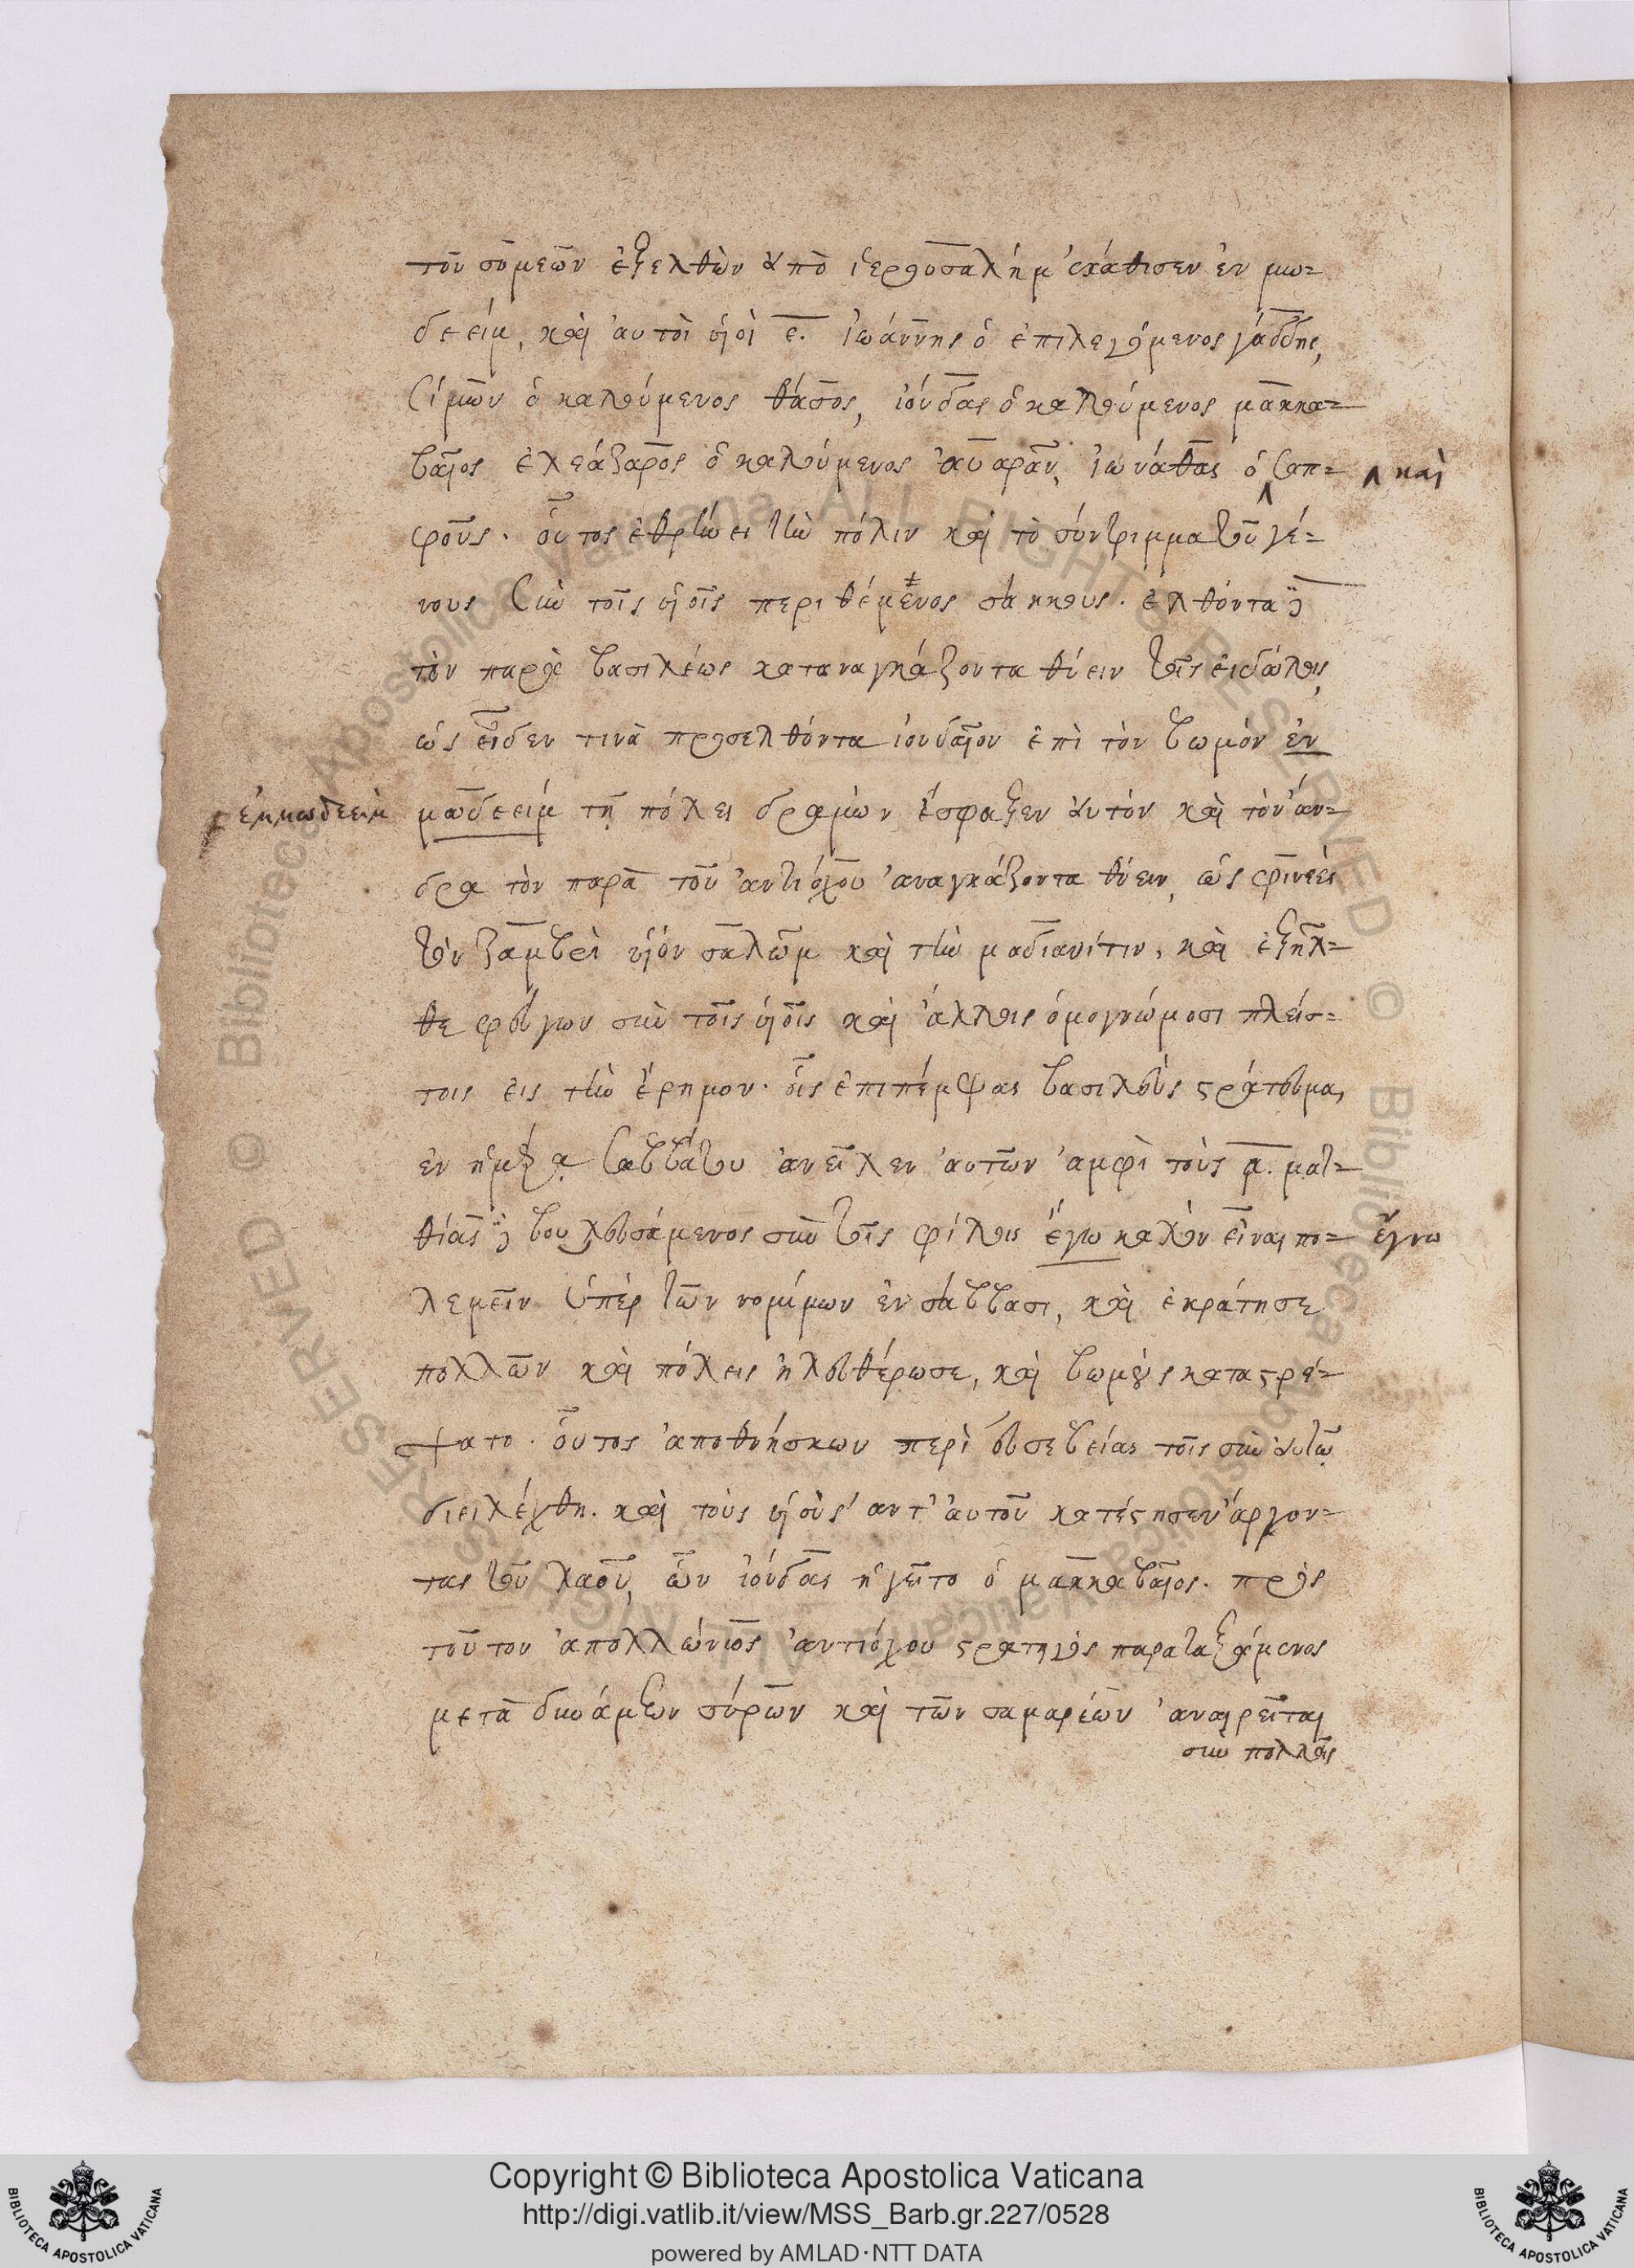 τοῦ συμεῶν ἐξελθὼν ἀπὸ ἱερουσαλήμ ἐκάθισεν ἐν μω-
δεείμ, καὶ αὐτοὶ υἱοὶ ε. Ἰωάννης ὁ ἐπιλεγόμενος γάδδης,
Σίμων ὁ καλούμενος θάσος, ἰούδας ὁ καλούμενος μακκα-
βαῖος ἐλεάζαρος ὁ καλούμενος αὐαρὰν, ἰωνάθας ὁ ʌ σαπ- ʌ καὶ
φοῦς. οὗτος ἐθρήνει τὴν πόλιν καὶ τὸ σύντριμμα τοῦ γέ-
νους σὺν τοῖς υἱοῖς περιθέμενος σάκκους. ἐλθόντα
τὸν παρὰ βασιλέως καταναγκάζοντα θύειν τοῖς εἰδώλοις,
ὡς εἶδεν τινὰ προσελθόντα ἰουδαῖον ἐπὶ τὸν βωμὸν ἐν
ἐμμωδεεὶμ μωδεείμ τῇ πόλει δραμὼν ἔσφαξεν αὐτὸν καὶ τὸν ἄν-
δρα τὸν παρὰ τοῦ ἀντιόχου ἀναγκάζοντα θύειν, ὡς φινεὲς
τὸν ζαμβρὶ υἱόν σαλὼμ καὶ τὴν μαδιανίτιν, καὶ ἐξῆλ-
θε φεύγων σὺν τοῖς υἱοῖς καὶ ἄλλοις ὁμογνώμοσι πλείσ-
τοις εἰς τὴν ἔρημον. οἷς ἐπιπέμψας βασιλεὺς στράτευμα,
ἐν ἡμέρᾳ σαββάτου ἀνεῖλεν αὐτῶν ἀμφὶ τοὺς α. ματ-
θίας βουλευσάμενος σὺν τοῖς φίλοις ἔγω καλὸν εἶναι πο- ἔγνω
λεμεῖν ὑπὲρ τῶν νομίμων ἐν σάββασι, καὶ ἐκράτησε
πολλῶν καὶ πόλεις ἠλευθέρωσε, καὶ βωμοὺς κατεστρέ-
ψατο. οὗτος ἀποθνήσκων περὶ εὐσεβείας τοῖς σὺν αὐτῷ
διειλέχθη. καὶ τοὺς υἱοὺς ἀντ' αὐτοῦ κατέστησεν ἄρχον-
τας τοῦ λαοῦ, ὧν ἰούδας ἡγεῖτο ὁ μακκαβαῖος. πρὸς
τοῦτον ἀπολλώνιος ἀντιόχου στρατηγὸς παραταξάμενος
μετὰ δυνάμεων σύρων καὶ τῶν σαμαρέων ἀναιρεῖται
σὺν πολλοῖς
Copyright © Biblioteca Apostolica Vaticana
http://digi.vatlib.it/view/MSS_Barb.gr.227/0528
powered by AMLAD·NTT DATA